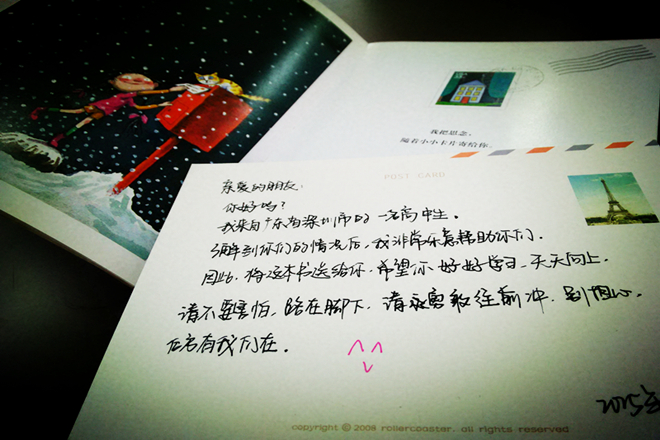 我把思念,
随着小小卡片寄给你.
POST CARD
亲爱的朋友:
你好吗?
我来自广东省深圳市的一名高中生。
了解到你们的情况后,我非常乐意帮助你们.
因此,将这本书送给你.希望你好好学习,天天向上.
请不要害怕,路在脚下,请勇敢往前冲,别担心
有我们在.
2015年
copyright © 2008 rollercoaster. all rights reserved